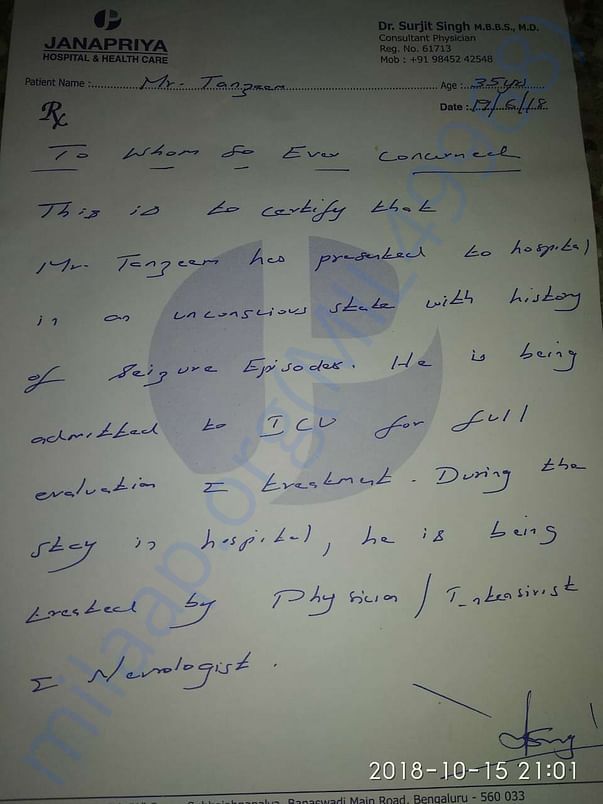 JANAPRIYA
HOSPITAL & HEALTH CARE
Dr. Surjit Singh M.B.B.S., M.D.
Consultant Physician
Reg. No. 61713
Mob : +91 98452 42548
Patient Name : Mr. Tanzeem Age : 35yrs
Date : 19/6/18
Rx
To Whom So Ever Concerned
This is to certify that
Mr. Tanzeem has presented to hospital
in an unconscious state with history
of Seizure Episodes. He is being
admitted to ICU for full
evaluation & treatment. During the
stay in hospital, he is being
treated by Physician / Intensivist
& Neurologist.
2018-10-15 21:01
Banaswadi Main Road, Bengaluru - 560 033